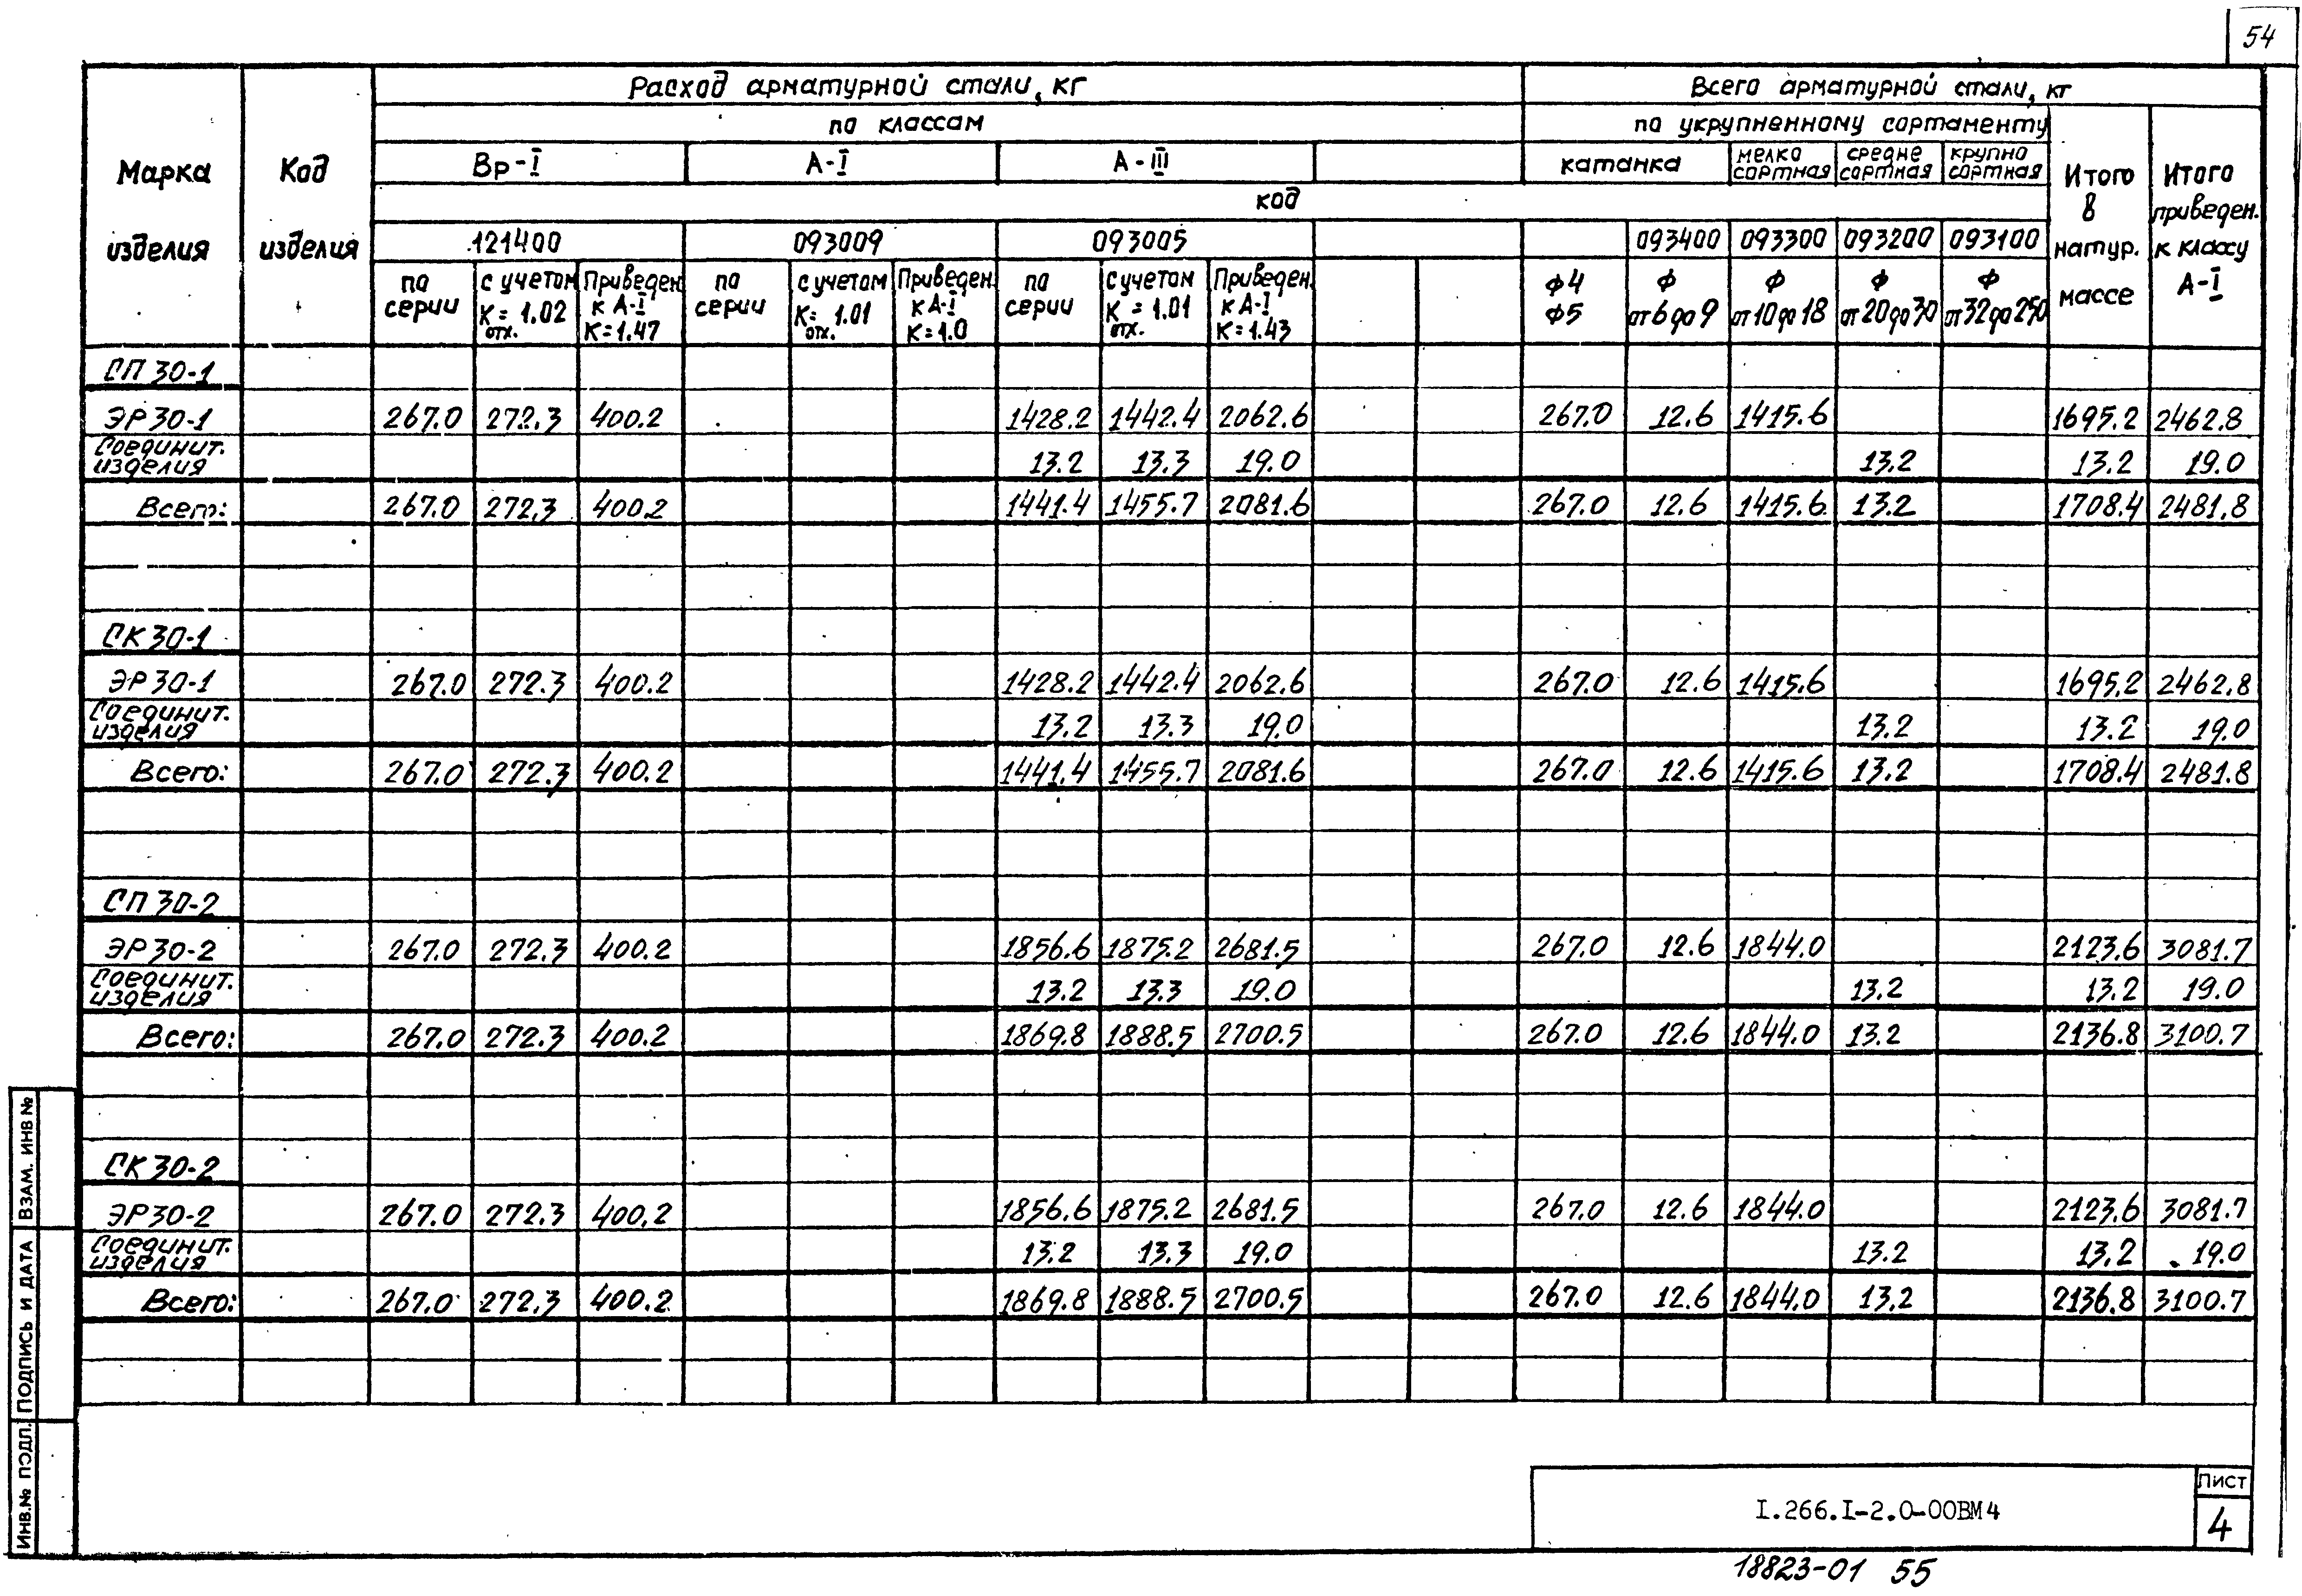 54
Расход арматурной стали, кг Всего арматурной стали, кг
по классам по укрупненному сортаменту
Марка изделия Код изделия Вр-I А-I А-III катанка мелко сортная средне сортная крупно сортная Итого в натур. массе Итого приведен. к классу А-I
код
121400 093009 093005 093400 093300 093200 093100
по серии с учетом К отх. = 1.02 Приведен. к А-I К=1.47 по серии с учетом К отх. = 1.01 Приведен. к А-I К=1.0 по серии с учетом К отх. = 1.01 Приведен. к А-I К=1.43 ф4 ф5 ф от 6 до 9 ф от 10 до 18 ф от 20 до 30 ф от 32 до 250
СП 30-1
ЭР 30-1 267.0 272.3 400.2 1428.2 1442.4 2062.6 267.0 12.6 1415.6 1695.2 2462.8
Соединит. изделия 13.2 13.3 19.0 13.2 13.2 19.0
Всего: 267.0 272.3 400.2 1441.4 1455.7 2081.6 267.0 12.6 1415.6 13.2 1708.4 2481.8
СК 30-1
ЭР 30-1 267.0 272.3 400.2 1428.2 1442.4 2062.6 267.0 12.6 1415.6 1695.2 2462.8
Соединит. изделия 13.2 13.3 19.0 13.2 13.2 19.0
Всего: 267.0 272.3 400.2 1441.4 1455.7 2081.6 267.0 12.6 1415.6 13.2 1708.4 2481.8
СП 30-2
ЭР 30-2 267.0 272.3 400.2 1856.6 1875.2 2681.5 267.0 12.6 1844.0 2123.6 3081.7
Соединит. изделия 13.2 13.3 19.0 13.2 13.2 19.0
Всего: 267.0 272.3 400.2 1869.8 1888.5 2700.5 267.0 12.6 1844.0 13.2 2136.8 3100.7
СК 30-2
ЭР 30-2 267.0 272.3 400.2 1856.6 1875.2 2681.5 267.0 12.6 1844.0 2123.6 3081.7
Соединит. изделия 13.2 13.3 19.0 13.2 13.2 19.0
Всего: 267.0 272.3 400.2 1869.8 1888.5 2700.5 267.0 12.6 1844.0 13.2 2136.8 3100.7
ИНВ.№ ПОДЛ. ПОДПИСЬ И ДАТА ВЗАМ. ИНВ №
I.266.I-2.0-00ВМ4
Лист
4
18823-01 55